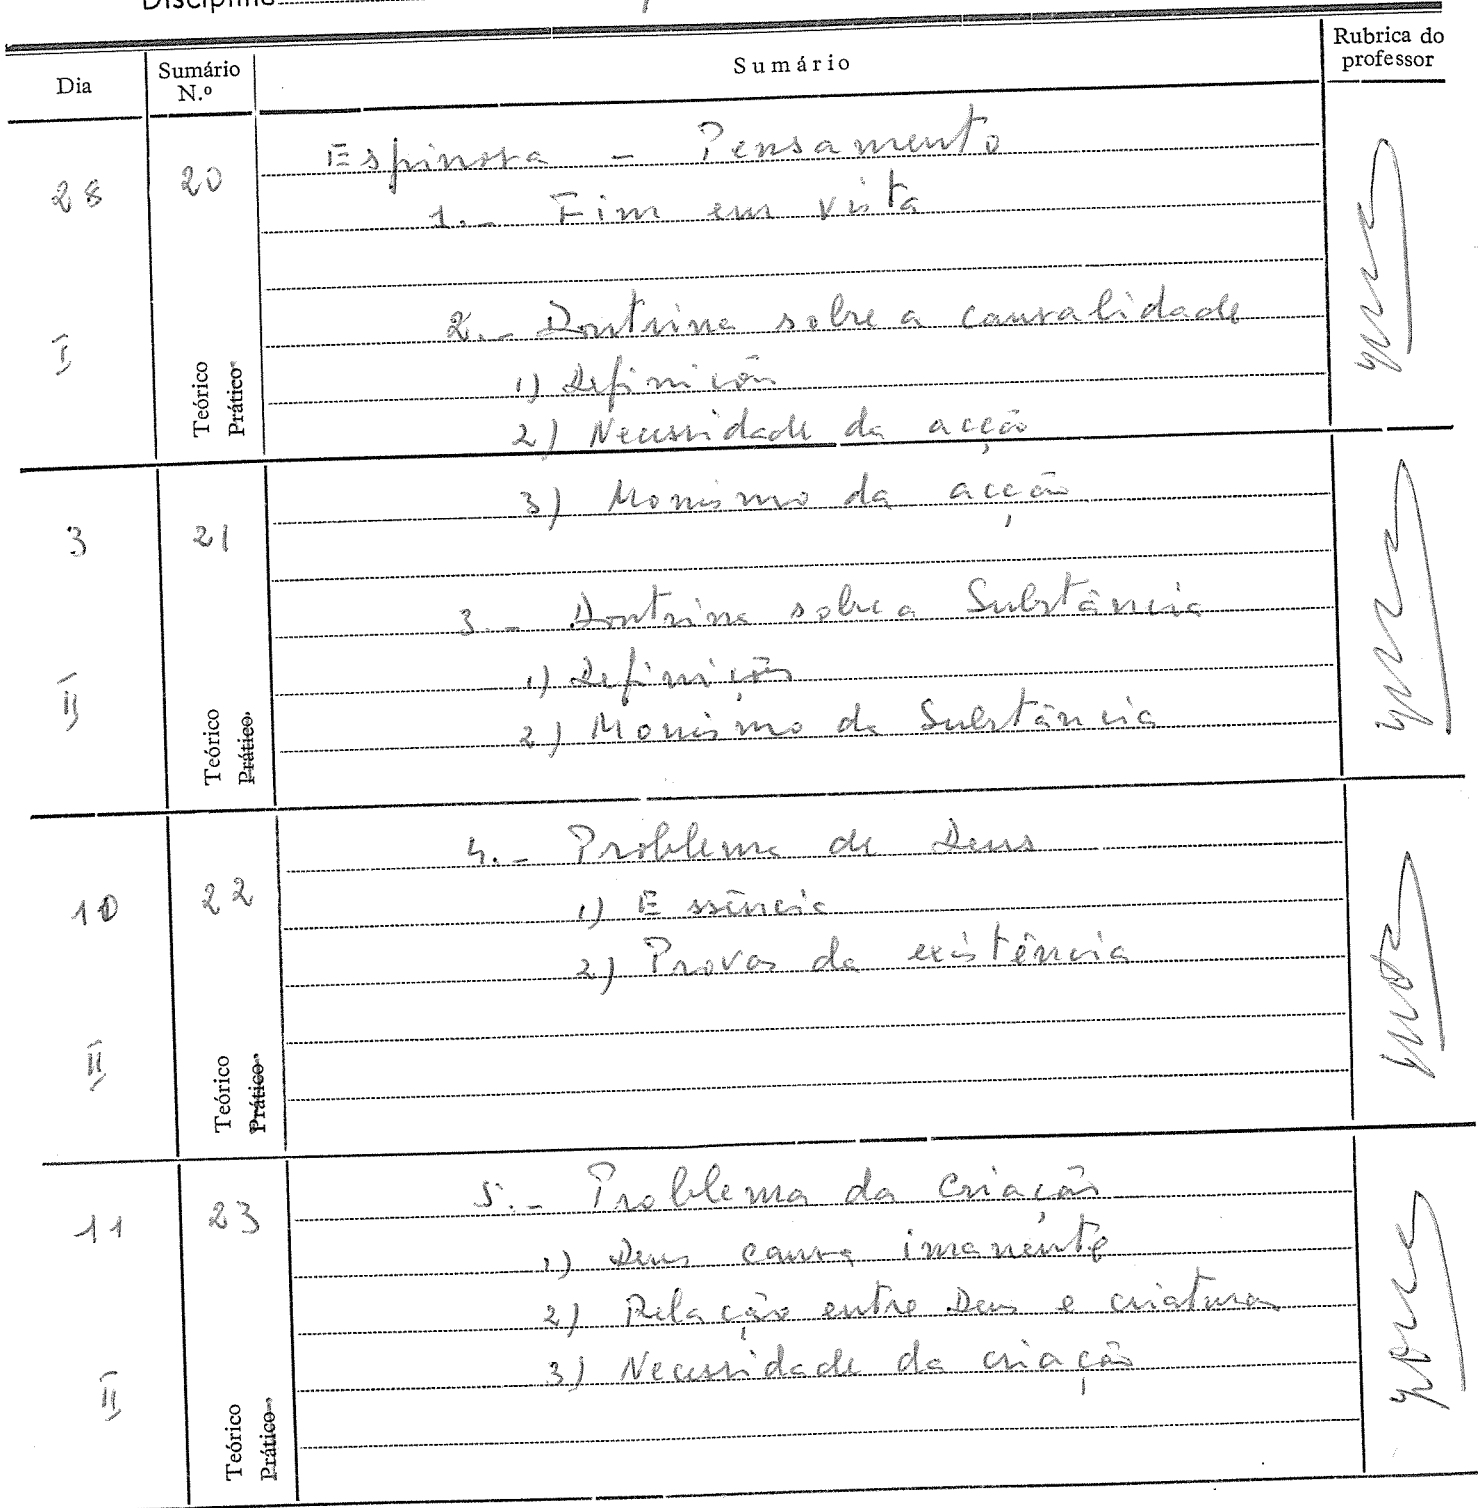 Disciplina
Dia
Sumário N.º
Sumário
Rubrica do professor
28
I
20
Teórico
Prático
Espinosa - Pensamento
1.- Fim em vista
2.- Doutrina sobre a causalidade
1) Definição
2) Necessidade da acção
3
II
21
Teórico
Prático
3) Monismo da acção
3.- Doutrina sobre a Substância
1) Definições
2) Monismo da Substância
10
II
22
Teórico
Prático
4.- Problema de Deus
1) Essência
2) Provas da existência
11
II
23
Teórico
Prático
5.- Problema da criação
1) Deus causa imanente
2) Relação entre Deus e criaturas
3) Necessidade da criação